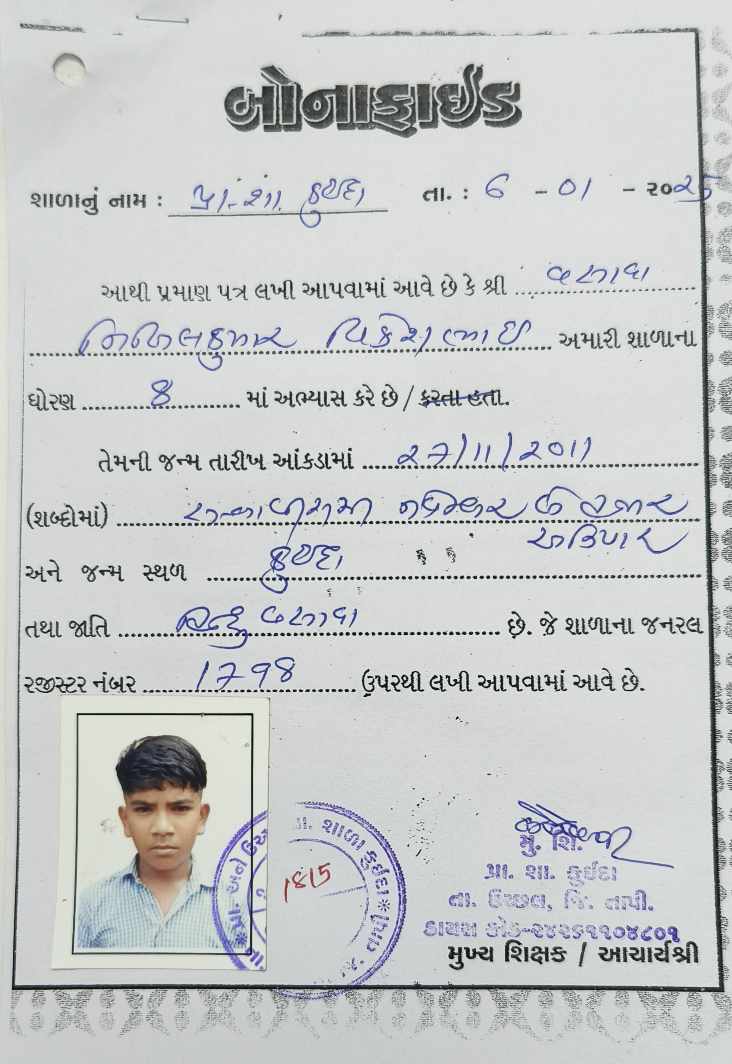 બોનાફાઈડ
શાળાનું નામ : પ્રા. શા. કુઈદા તા. : 6 - 01 - ૨૦૨5
આથી પ્રમાણ પત્ર લખી આપવામાં આવે છે કે શ્રી વસાવા
અમારી શાળાના
ધોરણ 8 માં અભ્યાસ કરે છે / કરતા હતા.
તેમની જન્મ તારીખ આંકડામાં ૨7/11/૨011
(શબ્દોમાં) સત્તાવીસમી નવેમ્બર બે હજાર
અગિયાર
અને જન્મ સ્થળ કુઈદા
તથા જાતિ હિન્દુ વસાવા છે. જે શાળાના જનરલ
રજીસ્ટર નંબર 1798 ઉપરથી લખી આપવામાં આવે છે.
1815
મું. શિ.
પ્રા. શા. કુઈદા
તા. ઉચ્છલ, જિ. તાપી.
મુખ્ય શિક્ષક / આચાર્યશ્રી